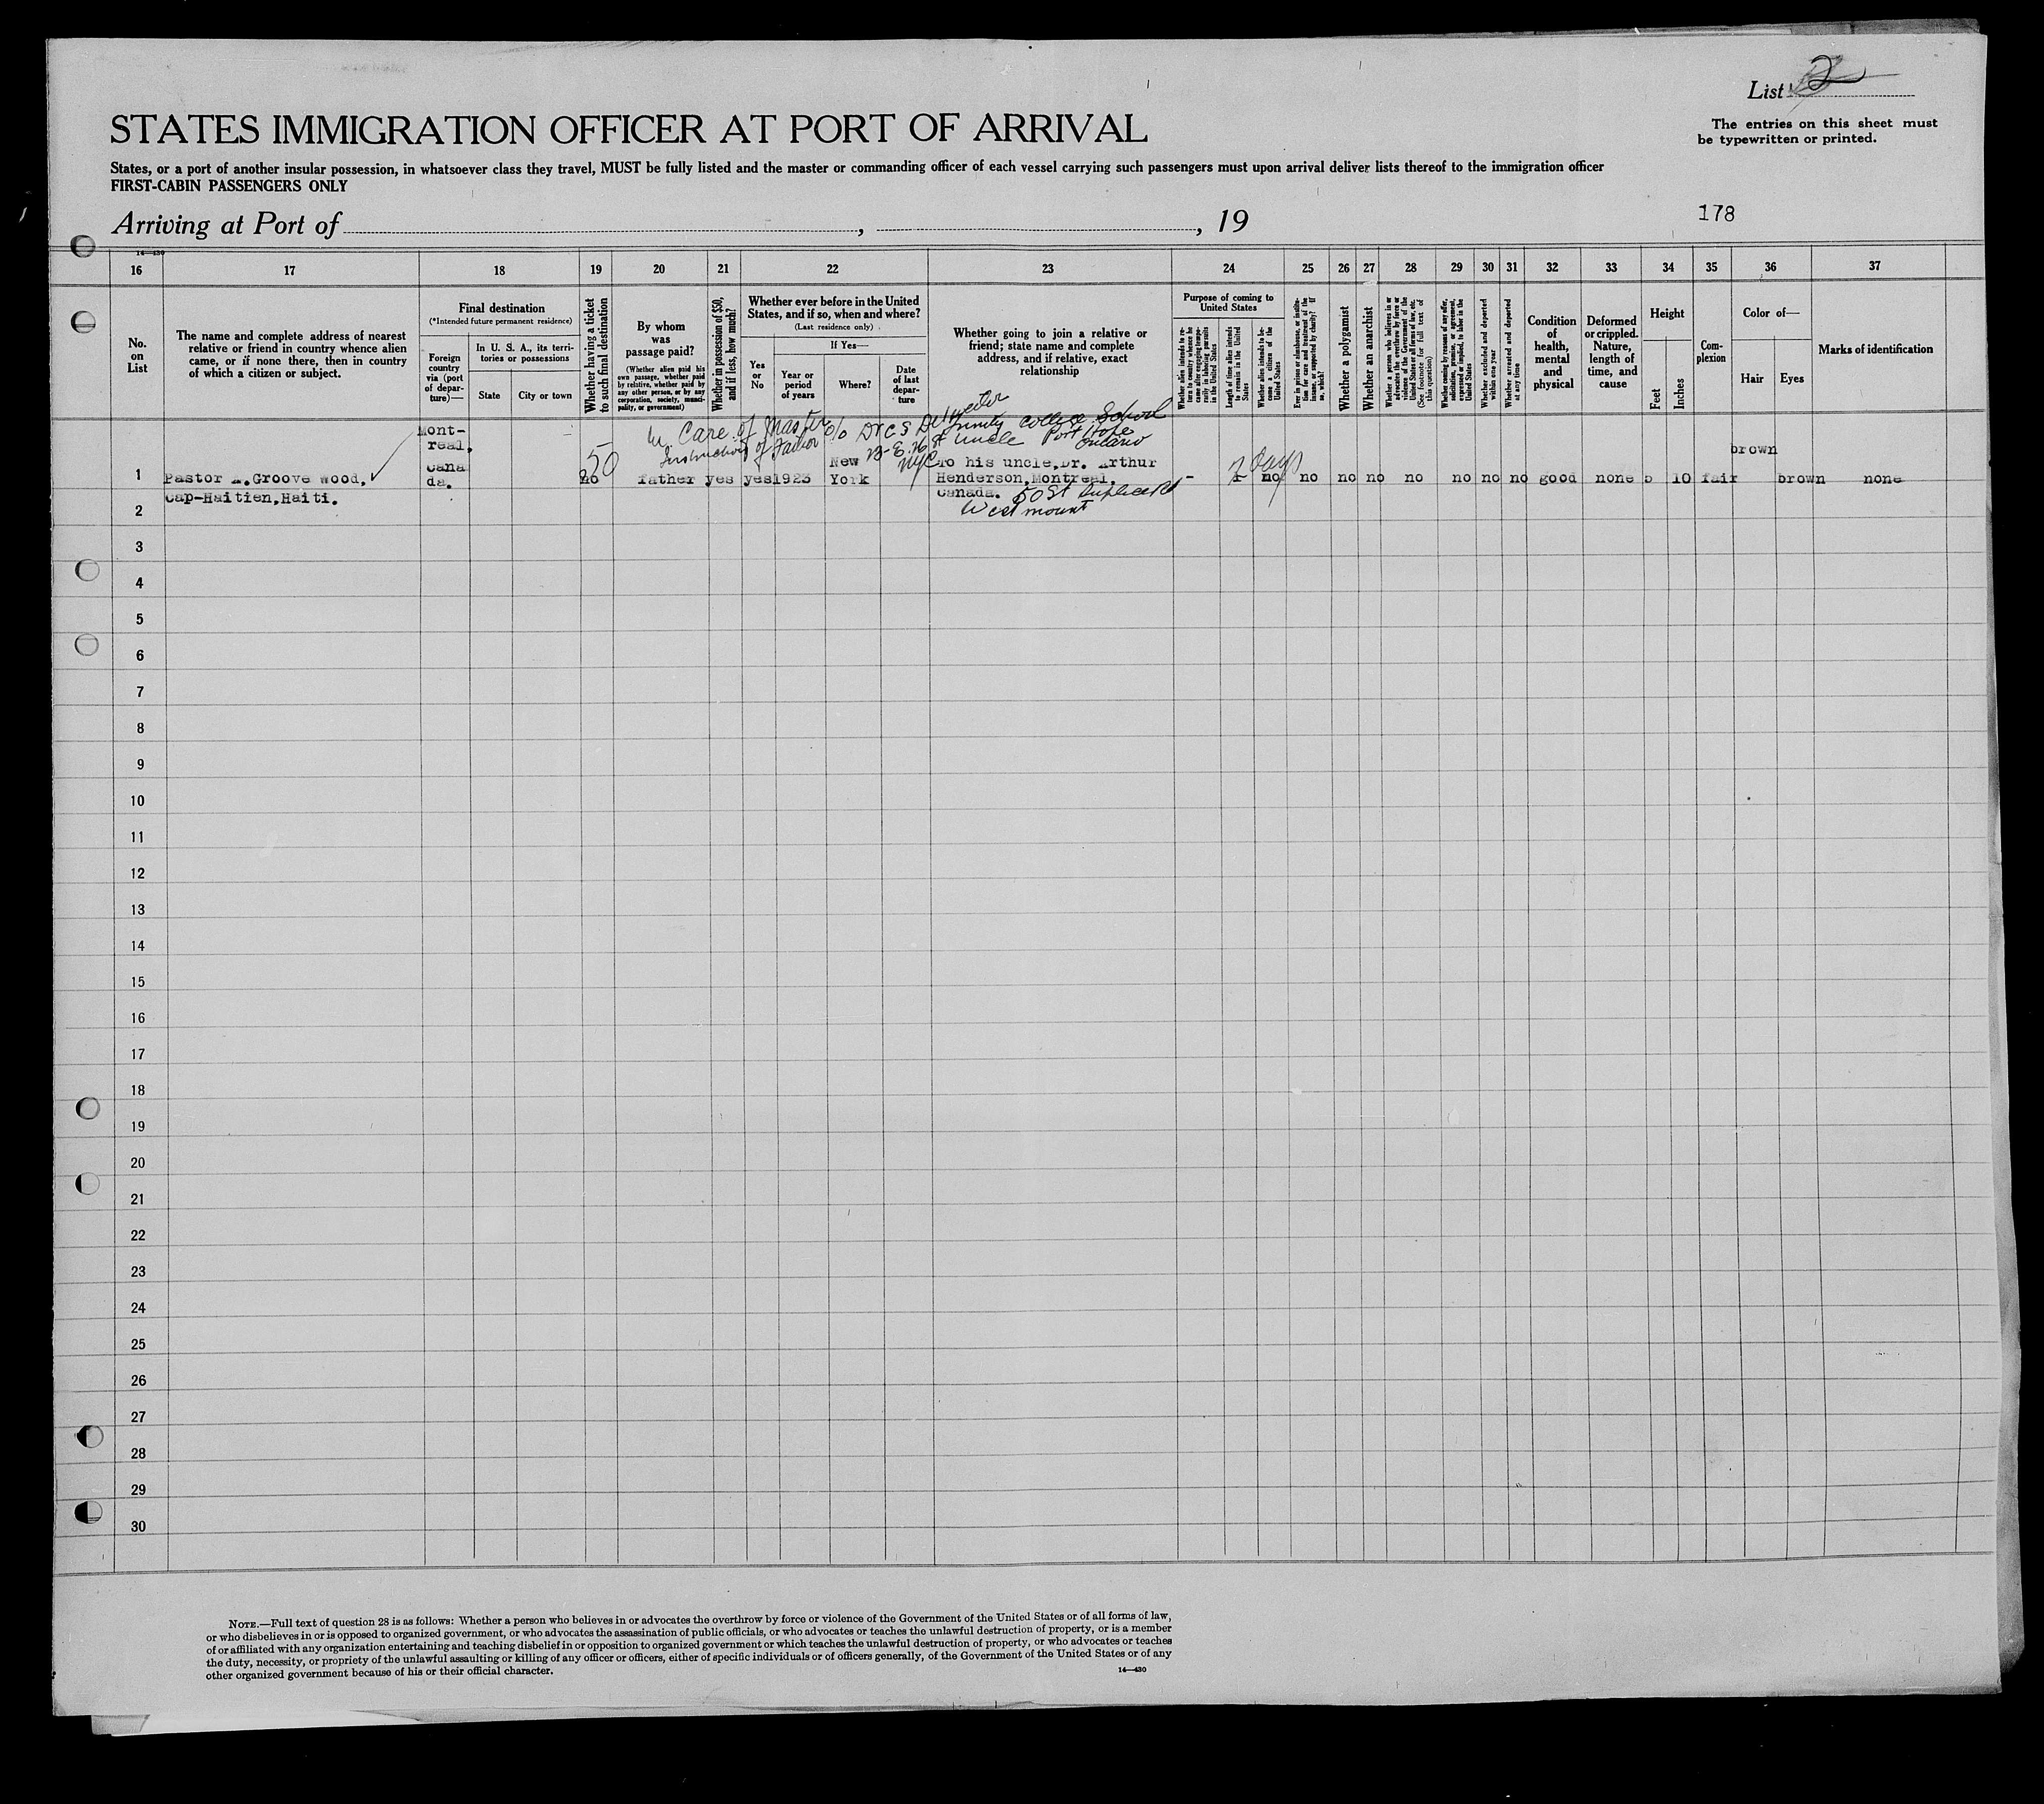 List 2
The entries on this sheet must
be typewritten or printed.
STATES IMMIGRATION OFFICER AT PORT OF ARRIVAL
States, or a port of another insular possession, in whatsoever class they travel, MUST be fully listed and the master or commanding officer of each vessel carrying such passengers must upon arrival deliver lists thereof to the immigration officer
FIRST-CABIN PASSENGERS ONLY
Arriving at Port of , , 19
178
14—430
16 17 18 19 20 21 22 23 24 25 26 27 28 29 30 31 32 33 34 35 36 37
No.
on
List
The name and complete address of nearest
relative or friend in country whence alien
came, or if none there, then in country
of which a citizen or subject.
Final destination
(*Intended future permanent residence)
Foreign
country
via (port
of depar-
ture)—
In U. S. A., its terri-
tories or possessions
State
City or town
Whether having a ticket
to such final destination
By whom
was
passage paid?
(Whether alien paid his
own passage, whether paid
by relative, whether paid by
any other person, or by any
corporation, society, munici-
pality, or government)
Whether in possession of $50,
and if less, how much?
Whether ever before in the United
States, and if so, when and where?
(Last residence only)
Yes
or
No
If Yes—
Year or
period
of years
Where?
Date
of last
depar-
ture
Whether going to join a relative or
friend; state name and complete
address, and if relative, exact
relationship
Purpose of coming to
United States
Whether alien intends to re-
turn to country whence he
came after engaging tempo-
rarily in laboring pursuits
in the United States
Length of time alien intends
to remain in the United
States
Whether alien intends to be-
come a citizen of the
United States
Ever in prison or almshouse, or institu-
tion for care and treatment of the
insane, or supported by charity? If
so, which?
Whether a polygamist
Whether an anarchist
Whether a person who believes in or
advocates the overthrow by force or
violence of the Government of the
United States or all forms of law, etc.
(See footnote for full text of
this question)
Whether coming by reason of any offer,
solicitation, promise, or agreement,
expressed or implied, to labor in the
United States
Whether excluded and deported
within one year
Whether arrested and deported
at any time
Condition
of
health,
mental
and
physical
Deformed
or crippled.
Nature,
length of
time, and
cause
Height
Feet
Inches
Com-
plexion
Color of—
Hair
Eyes
Marks of identification
In Care of Master c/o Dr C S Detweiler
Trinity College School
Instructions of Father
Port Hope
Ontario
St Uncle
NYC
1
Pastor Groove Wood,
Cap-Haitien, Haiti.
Mont-
real,
Cana
da.
no
50
father
yes
yes
1923
New
York
To his uncle, Dr. Arthur
Henderson, Montreal,
Canada.
Westmount
-
2 days
no no no no no no no no good none 5 10 fair brown brown none
2
3
4
5
6
7
8
9
10
11
12
13
14
15
16
17
18
19
20
21
22
23
24
25
26
27
28
29
30
NOTE.—Full text of question 28 is as follows: Whether a person who believes in or advocates the overthrow by force or violence of the Government of the United States or of all forms of law,
or who disbelieves in or is opposed to organized government, or who advocates the assassination of public officials, or who advocates or teaches the unlawful destruction of property, or is a member
of or affiliated with any organization entertaining and teaching disbelief in or opposition to organized government or which teaches the unlawful destruction of property, or who advocates or teaches
the duty, necessity, or propriety of the unlawful assaulting or killing of any officer or officers, either of specific individuals or of officers generally, of the Government of the United States or of any
other organized government because of his or their official character.
14—430